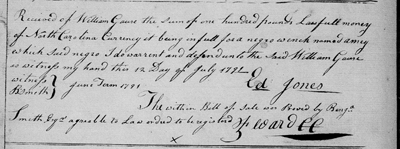 Received of William Gause the sum of one hundred pounds Lawfull money
of North Carolina Currency it being in full for a negro wench named amey
which said negro I do warrent and defend unto the Said William Gause
as witness my hand this 12 Day of July 1791
witness Ed Jones
B Smith June Term 1791
The within Bill of Sale was Proved by Benjn
Smith Esqr agreable to Law ordred to be registred